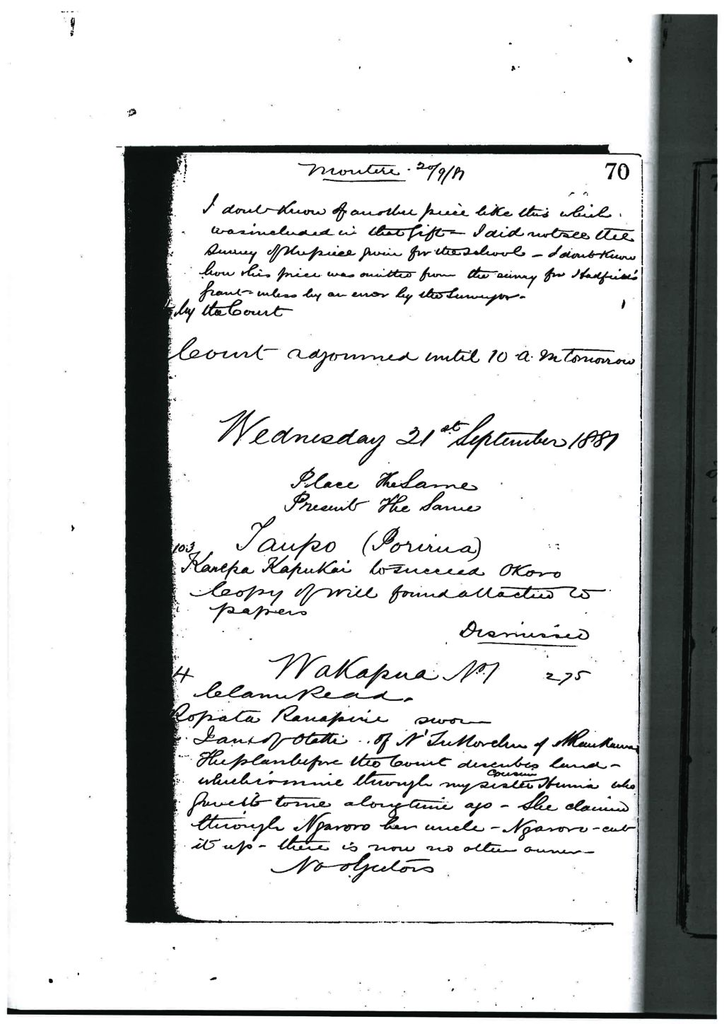 Moutere. 20/9/81
70
I don't know of another piece like this which
was included in that Gift - I did not see the
Survey of the piece given for the school - I dont know
how this piece was omitted from the survey for Hadfield's
grant - unless by an error by the Surveyor -
by the Court
Court adjourned until 10 a.m tomorrow
Wednesday 21st September 1881
Place The Same
Present The Same
103 Taupo (Porirua)
Karepa Kapukai to succeed Okoro
Copy of will found attached to
papers
Dismissed
4 Wakapua No 1 275
Claim Read.
Ropata Ranapiri sworn
I am of Otaki - of N' of NRaukawa
The plan before the Court describes land -
which is mine through my sister cousin Huria who
gave it to me a long time ago - She claimed
through Ngaroro her uncle - Ngaroro - cut
it up - there is now no other owner -
No objectors